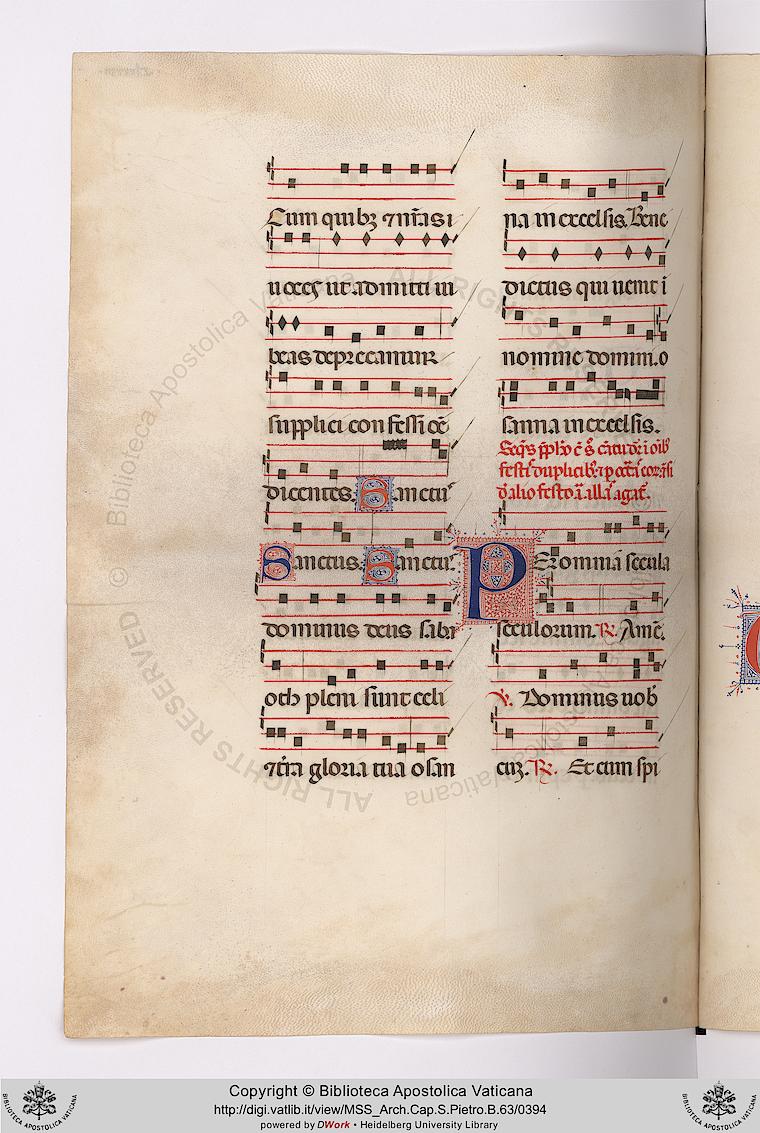 Cum quibꝫ ⁊ nr̃as i
uoces ut admitti iu
beas deprecamur
supplici confessi oē
dicentes. Sanctuˢ
Sanctus. Sanctuˢ
dominus deus saba
oth pleni sunt celi
⁊ t̃ra gloria tua osan
na in excelsis. Bene
dictus qui uenit i
nomine domini. o
sanna in excelsis.
PEr omnia secula
seculorum. ℟. Amē.
℣. Dominus uob
cuꝫ. ℟. Et cum spi
© Biblioteca Apostolica Vaticana
ALL RIGHTS RESERVED
Copyright © Biblioteca Apostolica Vaticana
http://digi.vatlib.it/view/MSS_Arch.Cap.S.Pietro.B.63/0394
powered by DWork • Heidelberg University Library